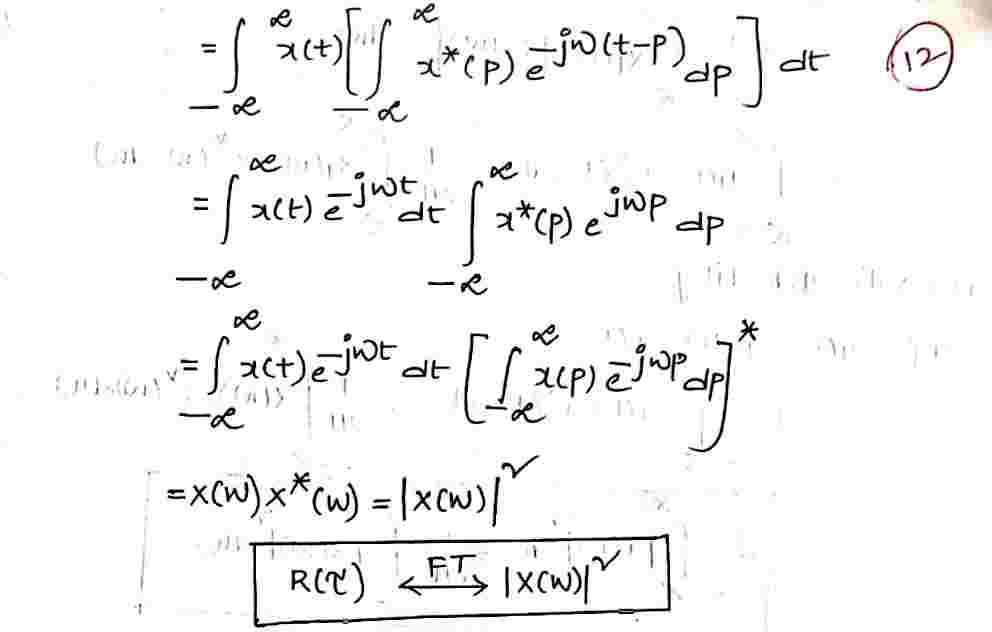 = ∫_{-∞}^{∞} x(t) [ ∫_{-∞}^{∞} x*(p) e^{-jω(t-p)} dp ] dt (12)
= ∫_{-∞}^{∞} x(t) e^{-jωt} dt ∫_{-∞}^{∞} x*(p) e^{jωp} dp
= ∫_{-∞}^{∞} x(t) e^{-jωt} dt [ ∫_{-∞}^{∞} x(p) e^{-jωp} dp ]*
= X(ω) X*(ω) = |X(ω)|²
R(τ) ←FT→ |X(ω)|²